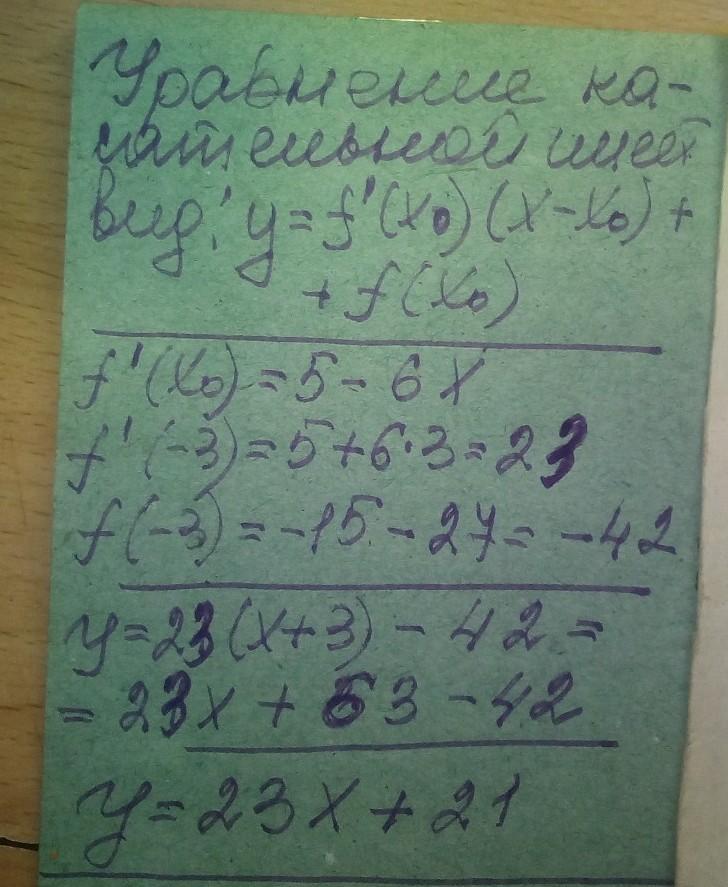 Уравнение ка-
сательной имеет
вид: y = f'(x₀)(x-x₀) +
+ f(x₀)
f'(x₀) = 5 - 6x
f'(-3) = 5+6·3 = 23
f(-3) = -15 - 27 = -42
y = 23(x+3) - 42 =
= 23x + 63 - 42
y = 23x + 21